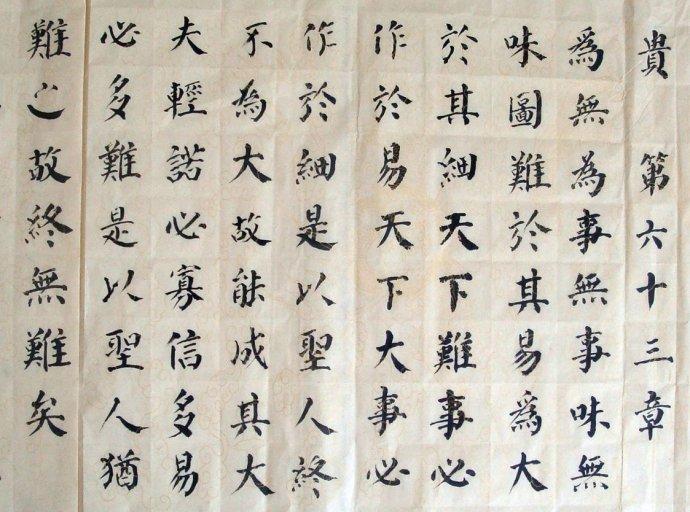 貴 第六十三章
爲無為事無事味無
味圖難於其易爲大
於其細天下難事必
作於易天下大事必
作於細是以聖人終
不為大故能成其大
夫輕諾必寡信多易
必多難是以聖人猶
難之故終無難矣